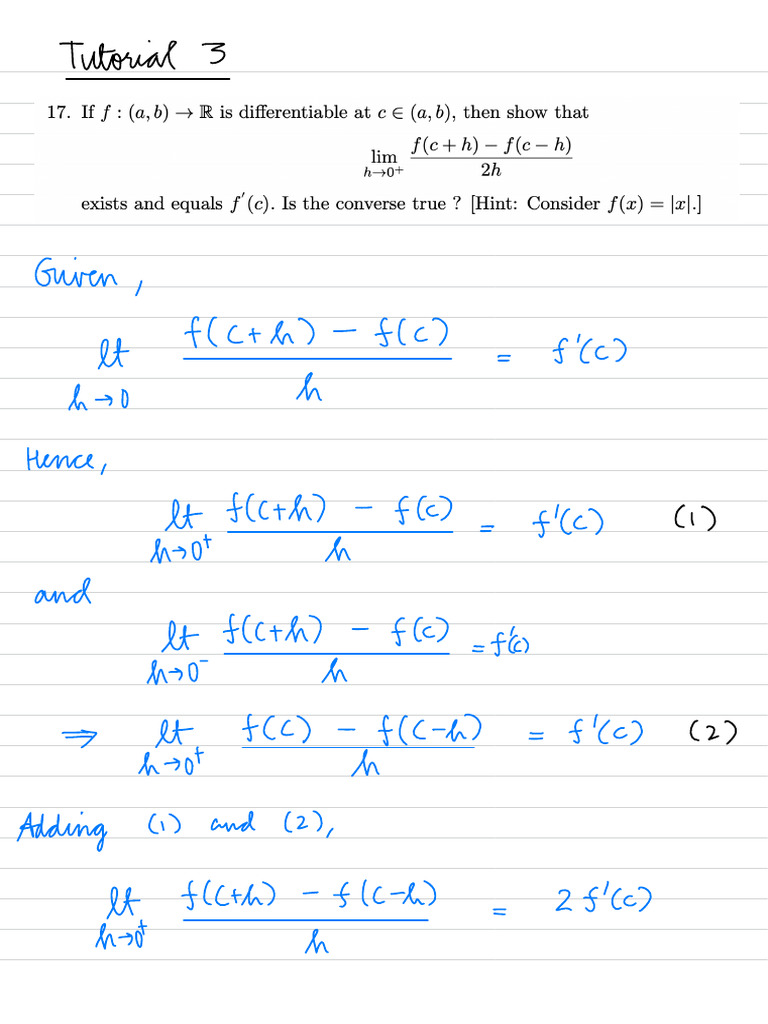 Tutorial 3
17. If f : (a, b) → ℝ is differentiable at c ∈ (a, b), then show that
lim_{h→0⁺} (f(c + h) − f(c − h)) / 2h
exists and equals f′(c). Is the converse true ? [Hint: Consider f(x) = |x|.]
Given,
lt_{h→0} (f(c+h) − f(c)) / h = f'(c)
Hence,
lt_{h→0⁺} (f(c+h) − f(c)) / h = f'(c) (1)
and
lt_{h→0⁻} (f(c+h) − f(c)) / h = f'(c)
⇒ lt_{h→0⁺} (f(c) − f(c−h)) / h = f'(c) (2)
Adding (1) and (2),
lt_{h→0⁺} (f(c+h) − f(c−h)) / h = 2 f'(c)